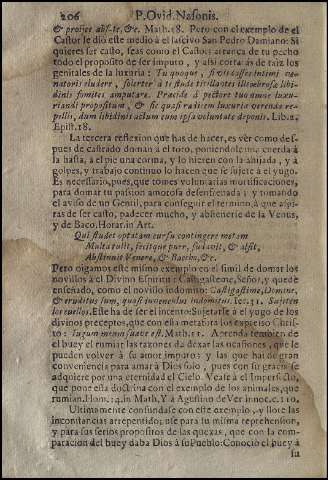 206 P. Ovid. Nasonis.
& projice abs te, &c. Math. 18. Pero con el exemplo de el
Castor le dió este medio à el lascivo San Pedro Damiano: Si
quieres ser casto, seas como el Castor: arranca de tu pecho
todo el proposito de ser impuro, y assi cortarás de raiz los
genitales de la luxuria: Tu quoque, si vis assectinimi
natoris eludere, solerter à te stude titillantis illecebrosa libi-
dinis fomites amputare. Præscide à pectore tuo tuæ luxu-
riandi propositum, & sic quasi radicem luxuria verenda re-
pellis, dum libidinis actum cum ipsa voluntate deponis. Lib. 2.
Epist. 18.
La tercera reflexion que has de hacer, es vèr como des-
pues de castrado doman à el toro, poniendole una cuerda à
la hasta, à el pie una corma, y lo hieren con la ahijada, y à
golpes, y trabajo continuo lo hacen que se sujete à el yugo.
Es necessario, pues, que tomes voluntarias mortificaciones,
para domar tu passion amorosa desenfrenada; y tomando
el aviso de un Gentil, para conseguir el termino, à que aspi-
ras de ser casto, padecer mucho, y abstenerte de la Venus,
y de Baco. Horat. in Art.
Qui studet optatam cursu contingere metam
Multa tulit, fecitque puer, sudavit, & alsit,
Abstinuit Venere, & Baccho, &c.
Pero oigamos este mismo exemplo en el simil de domar los
novillos à el Divino Espiritu: Castigasteme, Señor, y quedè
enseñado, como el novillo indomito: Castigasti me, Domine,
& eruditus sum, quasi iuvenculus indomitus. Ier. 31. Sujeten
los cuellos. Este ha de ser el intento: Sujetarse à el yugo de los
divinos preceptos, que con ella metafora los expresso Chris-
to: Iugum meum suave est. Math. 11. Aprenda tambien de
el buey el rumiar las razones de dexar las ocasiones, que le
pueden volver à su amor impuro; y las que hai de gran
conveniencia para amar à Dios solo, pues con su gracia se
adquiere por una eternidad el Cielo. Vease à el Imperfecto,
que pone esta doctrina con el exemplo de los animales, que
rumian. Hom. 14. in Math. Y à Agustino de Ver innoc. c. 110.
Ultimamente confundase con este exemplo, y llore las
inconstancias arrepentido; use para tu misma reprehension,
y para sus serios propositos de las quexas, que con la com-
paracion del buey daba Dios à su Pueblo: Conociò el buey à
su